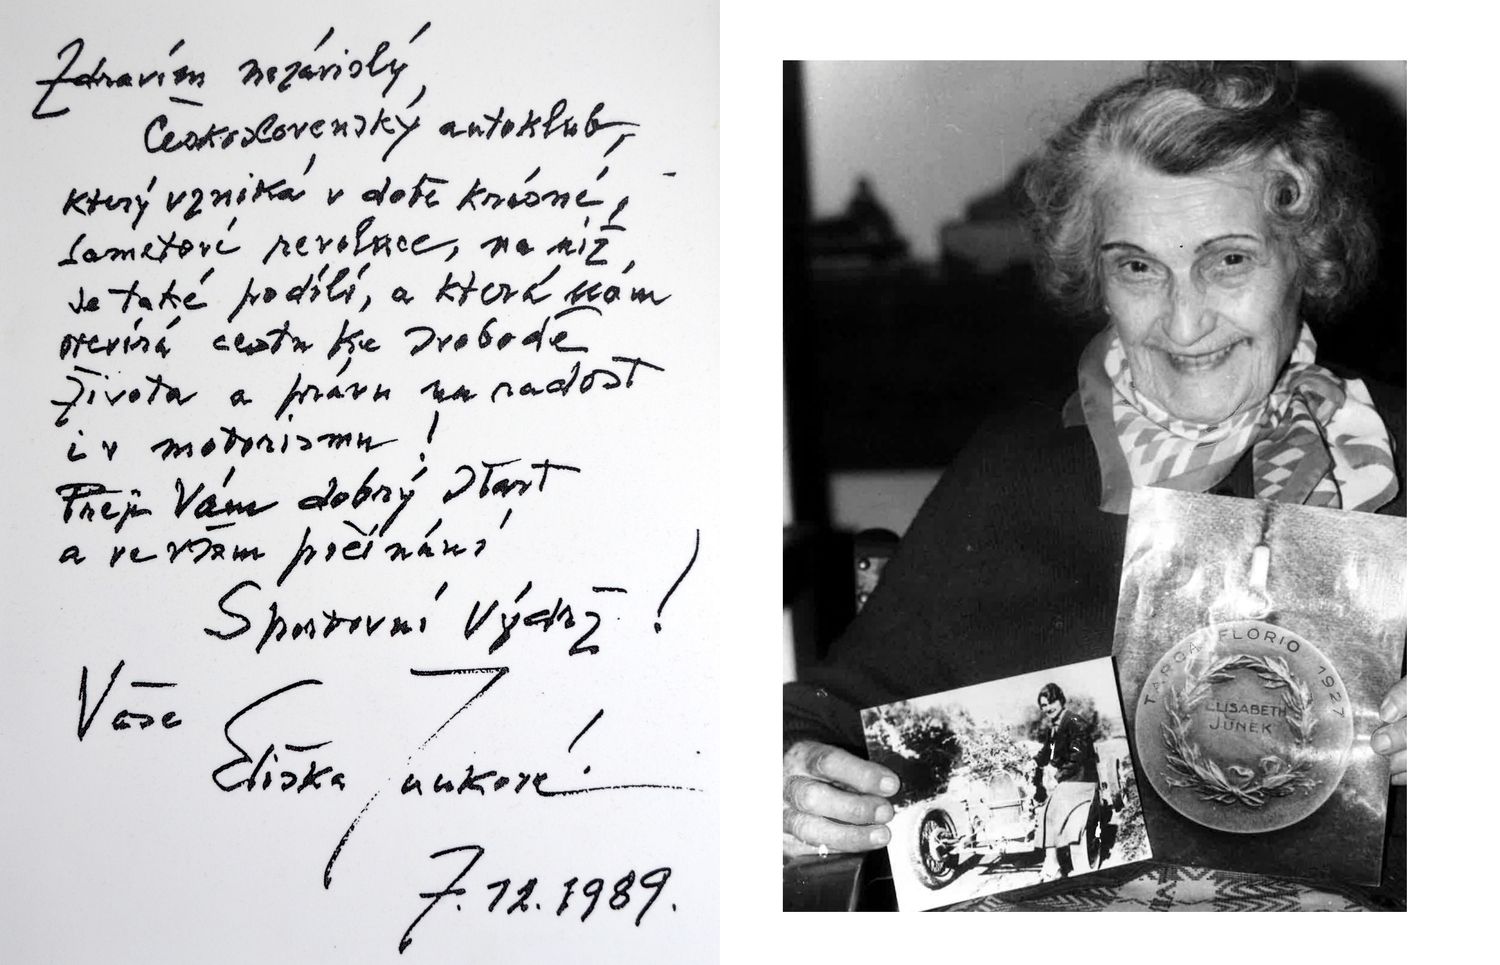 Zdravím nezávislý,
Československý autoklub,
který vzniká v době krásné,
sametové revoluce, na níž
se také podílí, a která nám
otevírá cestu ke svobodě
života a právu na radost
i v motorismu!
Přeji Vám dobrý start
a ve všem počínání
Sportovní výdrž!
Vaše
Eliška Junková.
7.12.1989.
TARGA FLORIO 1927
ELISABETH
JUNEK